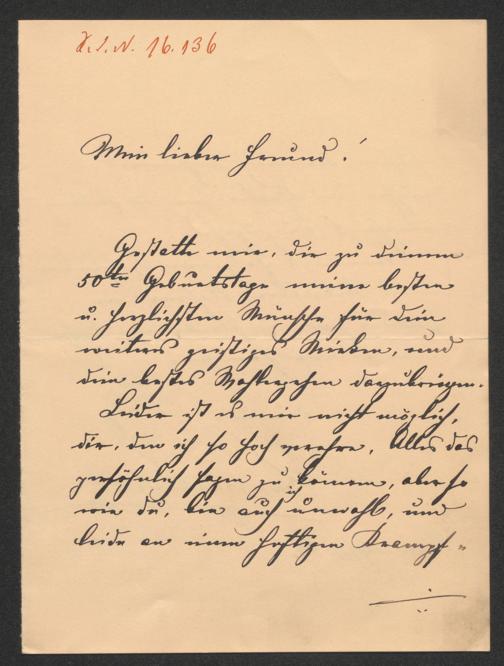 H.I.N. 16.136
Mein lieber Freund!
Gestatte mir, dir zu deinem
50ten Geburtstage meine besten
u. herzlichsten Wünsche für dein
weiteres geistiges Wirken, und
dein bestes Wohlergehen darzubringen.
Leider ist es mir nicht möglich,
dir, den ich so hoch verehre, Alles das
persönlich sagen zu können, aber so
wie du, bin auch ich unwohl, und
leide an einem heftigen Krampf-